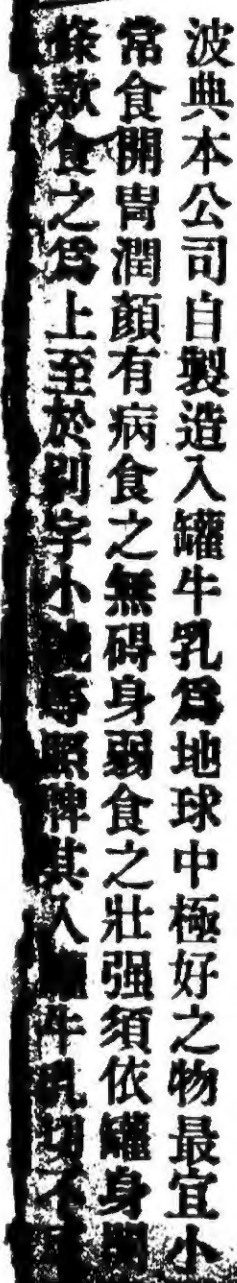 波典本公司自製造入罐牛乳爲地球中極好之物最宜小
常食開胃潤顏有病食之無碍身弱食之壯强須依罐身開
條款食之爲上至於別字小號等照牌其入罐牛乳切不